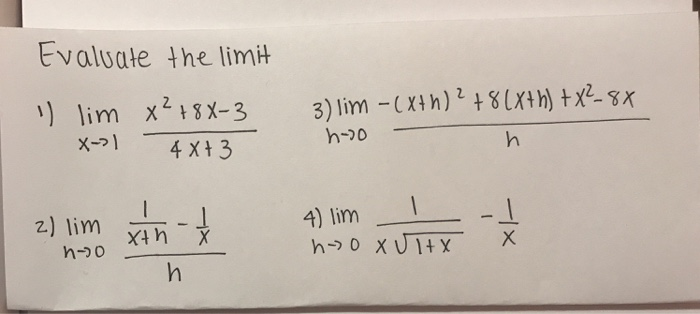 Evaluate the limit
1) lim x→1 (x² + 8x - 3) / (4x + 3)
3) lim h→0 (-(x+h)² + 8(x+h) + x² - 8x) / h
2) lim h→0 (1/(x+h) - 1/x) / h
4) lim h→0 1/(x√(1+x)) - 1/x